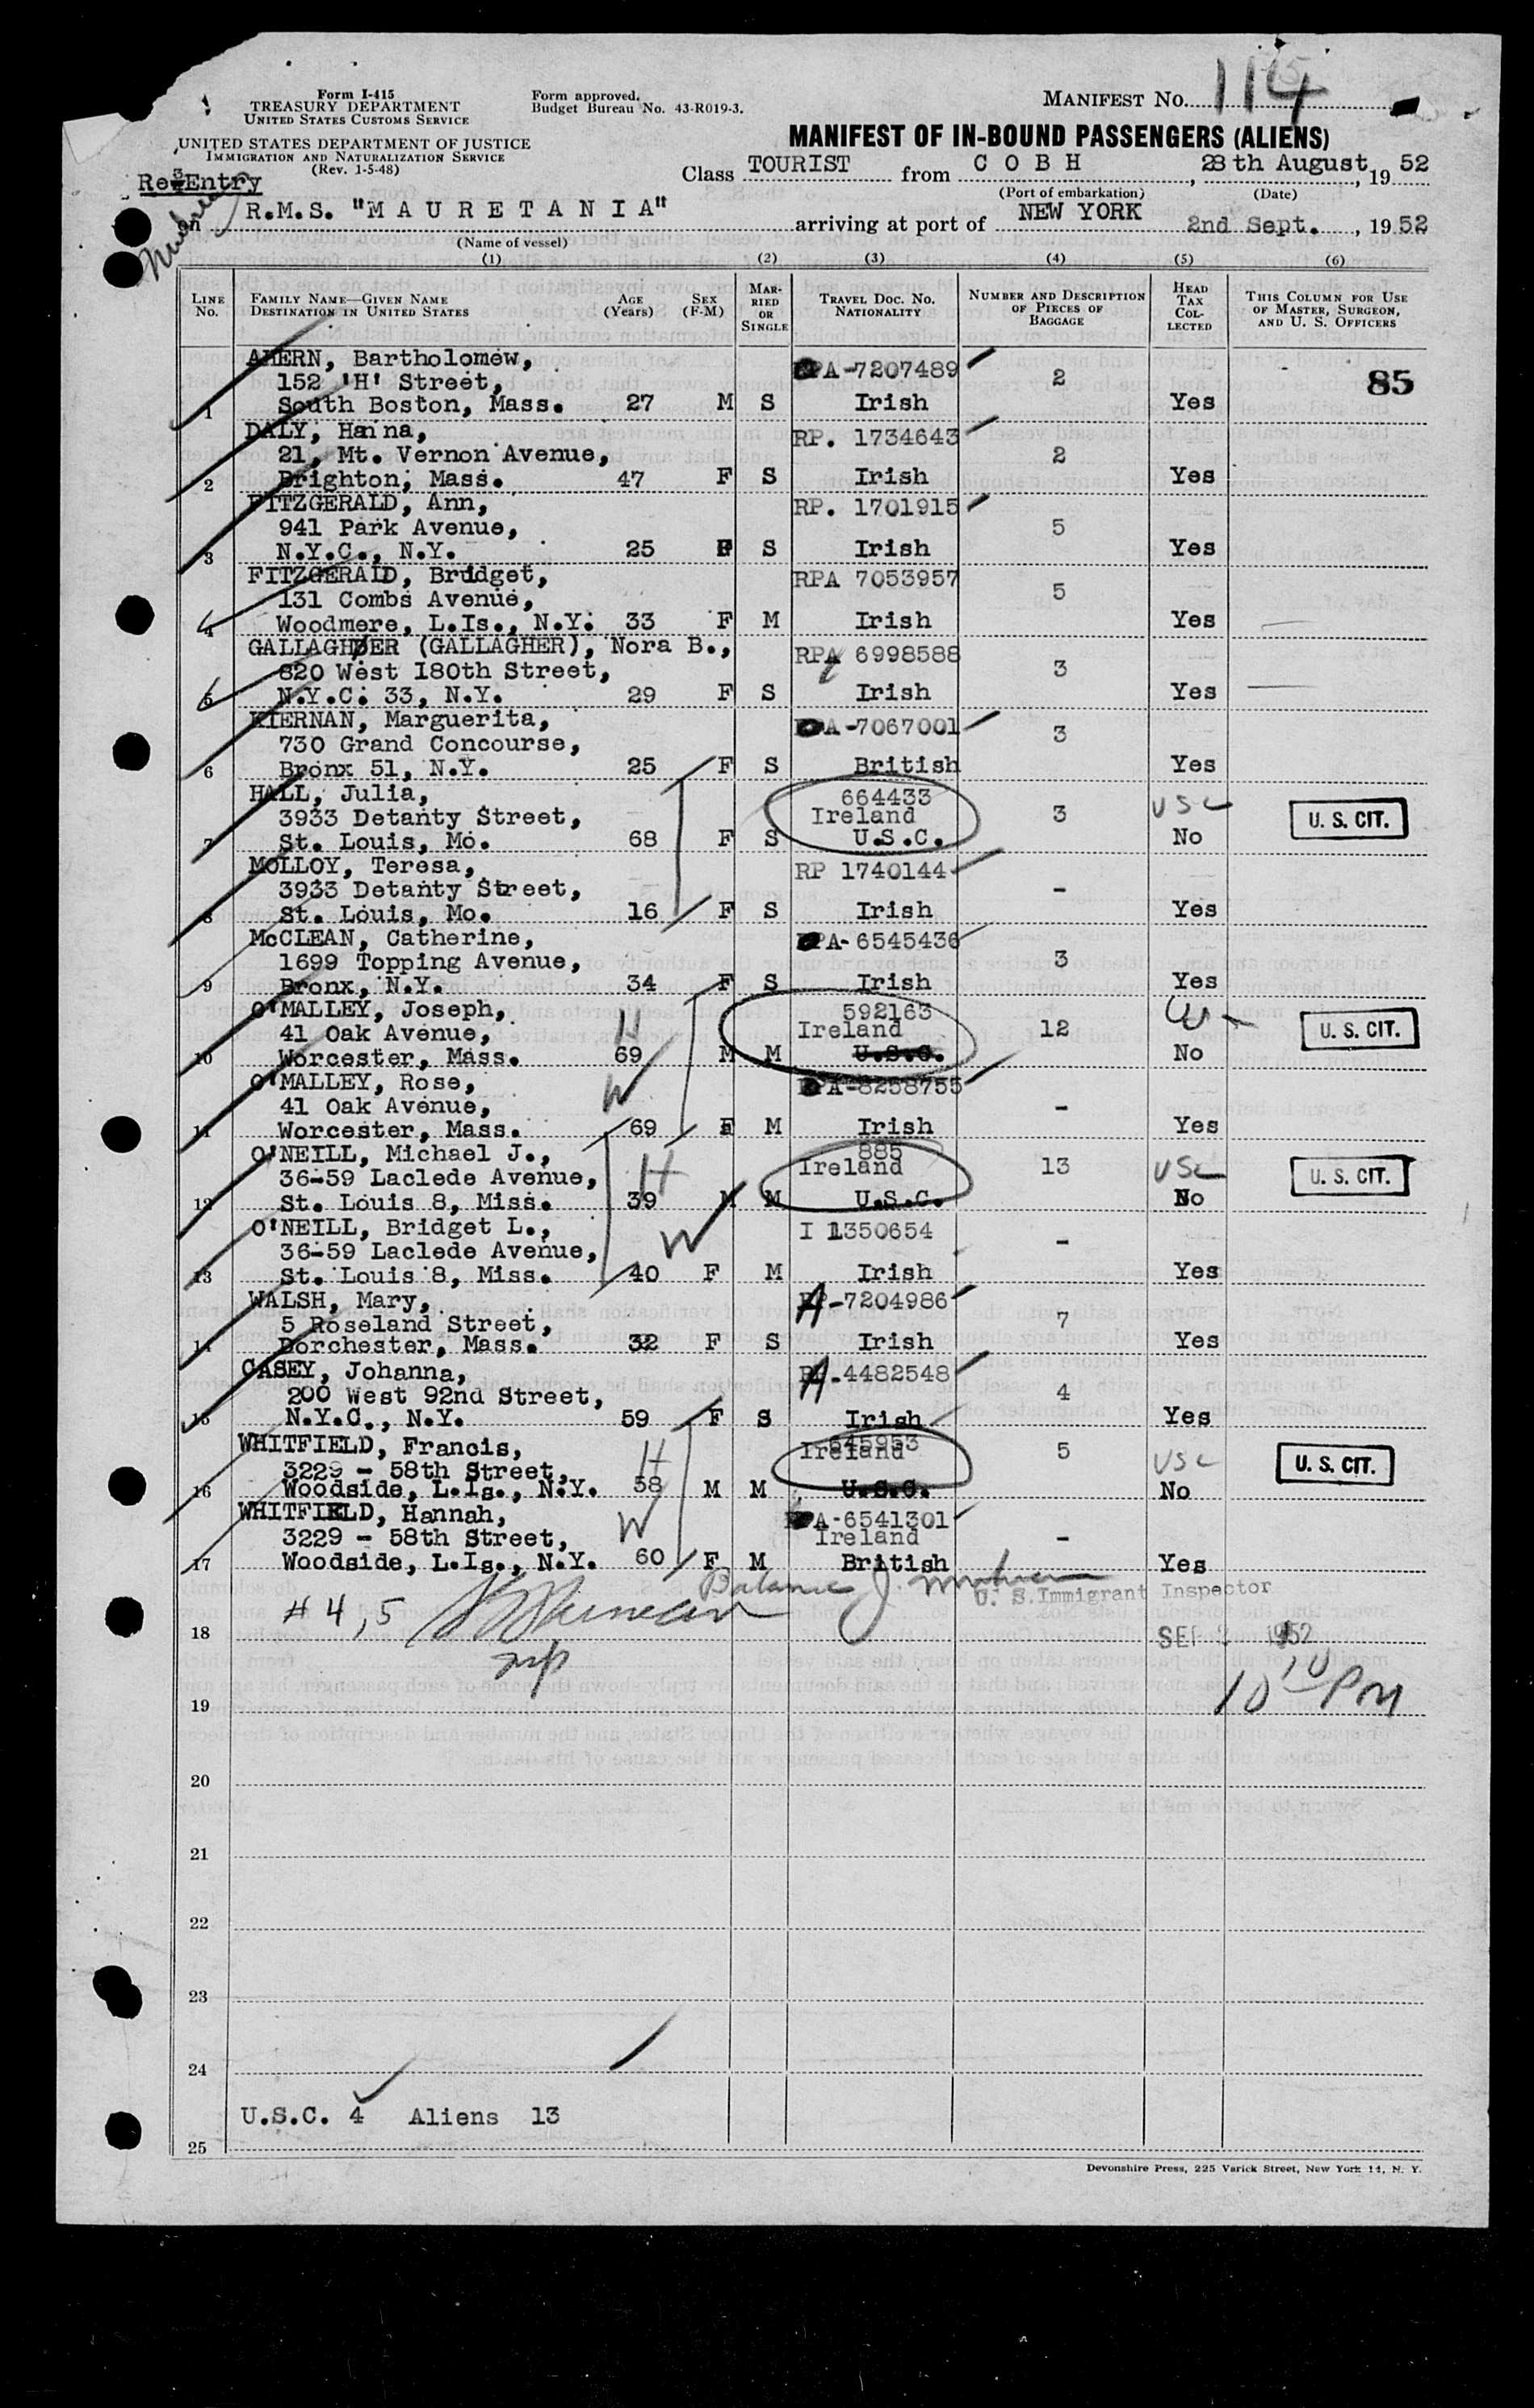 Form I-415
TREASURY DEPARTMENT
UNITED STATES CUSTOMS SERVICE
UNITED STATES DEPARTMENT OF JUSTICE
IMMIGRATION AND NATURALIZATION SERVICE
(Rev. 1-5-48)
Form approved.
Budget Bureau No. 43-R019-3.
MANIFEST No. 114
MANIFEST OF IN-BOUND PASSENGERS (ALIENS)
Class TOURIST from COBH, 28th August, 1952
(Port of embarkation) (Date)
Re-Entry
on R.M.S. "MAURETANIA" arriving at port of NEW YORK 2nd Sept., 1952
(Name of vessel)
(1) (2) (3) (4) (5) (6)
LINE No. FAMILY NAME—GIVEN NAME DESTINATION IN UNITED STATES AGE (Years) SEX (F-M) MARRIED OR SINGLE TRAVEL DOC. No. NATIONALITY NUMBER AND DESCRIPTION OF PIECES OF BAGGAGE HEAD TAX COLLECTED THIS COLUMN FOR USE OF MASTER, SURGEON, AND U. S. OFFICERS
AHERN, Bartholomew, PA-7207489 2 85
152 'H' Street,
1 South Boston, Mass. 27 M S Irish Yes
DALY, Hanna, RP. 1734643
21, Mt. Vernon Avenue, 2
2 Brighton, Mass. 47 F S Irish Yes
FITZGERALD, Ann, RP. 1701915
941 Park Avenue, 5
3 N.Y.C., N.Y. 25 F S Irish Yes
FITZGERALD, Bridget, RPA 7053957
131 Combs Avenue, 5
4 Woodmere, L.Is., N.Y. 33 F M Irish Yes
GALLAGHER (GALLAGHER), Nora B., RPA 6998588
820 West 180th Street, 3
5 N.Y.C. 33, N.Y. 29 F S Irish Yes
KIERNAN, Marguerita, A-7067001
730 Grand Concourse, 3
6 Bronx 51, N.Y. 25 F S British Yes
HALL, Julia, 664433 USC
3933 Detanty Street, Ireland 3 U. S. CIT.
7 St. Louis, Mo. 68 F S U.S.C. No
MOLLOY, Teresa, RP 1740144
3933 Detanty Street, -
8 St. Louis, Mo. 16 F S Irish Yes
McCLEAN, Catherine, PA-6545436
1699 Topping Avenue, 3
9 Bronx, N.Y. 34 F S Irish Yes
O'MALLEY, Joseph, H 592163
41 Oak Avenue, Ireland 12 U. S. CIT.
10 Worcester, Mass. 69 M M U.S.C. No
O'MALLEY, Rose, W PA-8258755
41 Oak Avenue, -
11 Worcester, Mass. 69 F M Irish Yes
O'NEILL, Michael J., H 885
36-59 Laclede Avenue, Ireland 13 USC U. S. CIT.
12 St. Louis 8, Miss. 39 M M U.S.C. No
O'NEILL, Bridget L., W I 1350654
36-59 Laclede Avenue, -
13 St. Louis 8, Miss. 40 F M Irish Yes
WALSH, Mary, A-7204986
5 Roseland Street, 7
14 Dorchester, Mass. 32 F S Irish Yes
CASEY, Johanna, A-4482548
200 West 92nd Street, 4
15 N.Y.C., N.Y. 59 F S Irish Yes
WHITFIELD, Francis, H 645953 Ireland 5 USC U. S. CIT.
3229 - 58th Street,
16 Woodside, L.Is., N.Y. 58 M M U.S.C. No
WHITFIELD, Hannah, W A-6541301
3229 - 58th Street, Ireland -
17 Woodside, L.Is., N.Y. 60 F M British Yes
Balance
U. S. Immigrant Inspector
# 4, 5
18 SEP 2 1952
19 10 10 PM
20
21
22
23
24
U.S.C. 4 Aliens 13
25
Devonshire Press, 225 Varick Street, New York 14, N. Y.